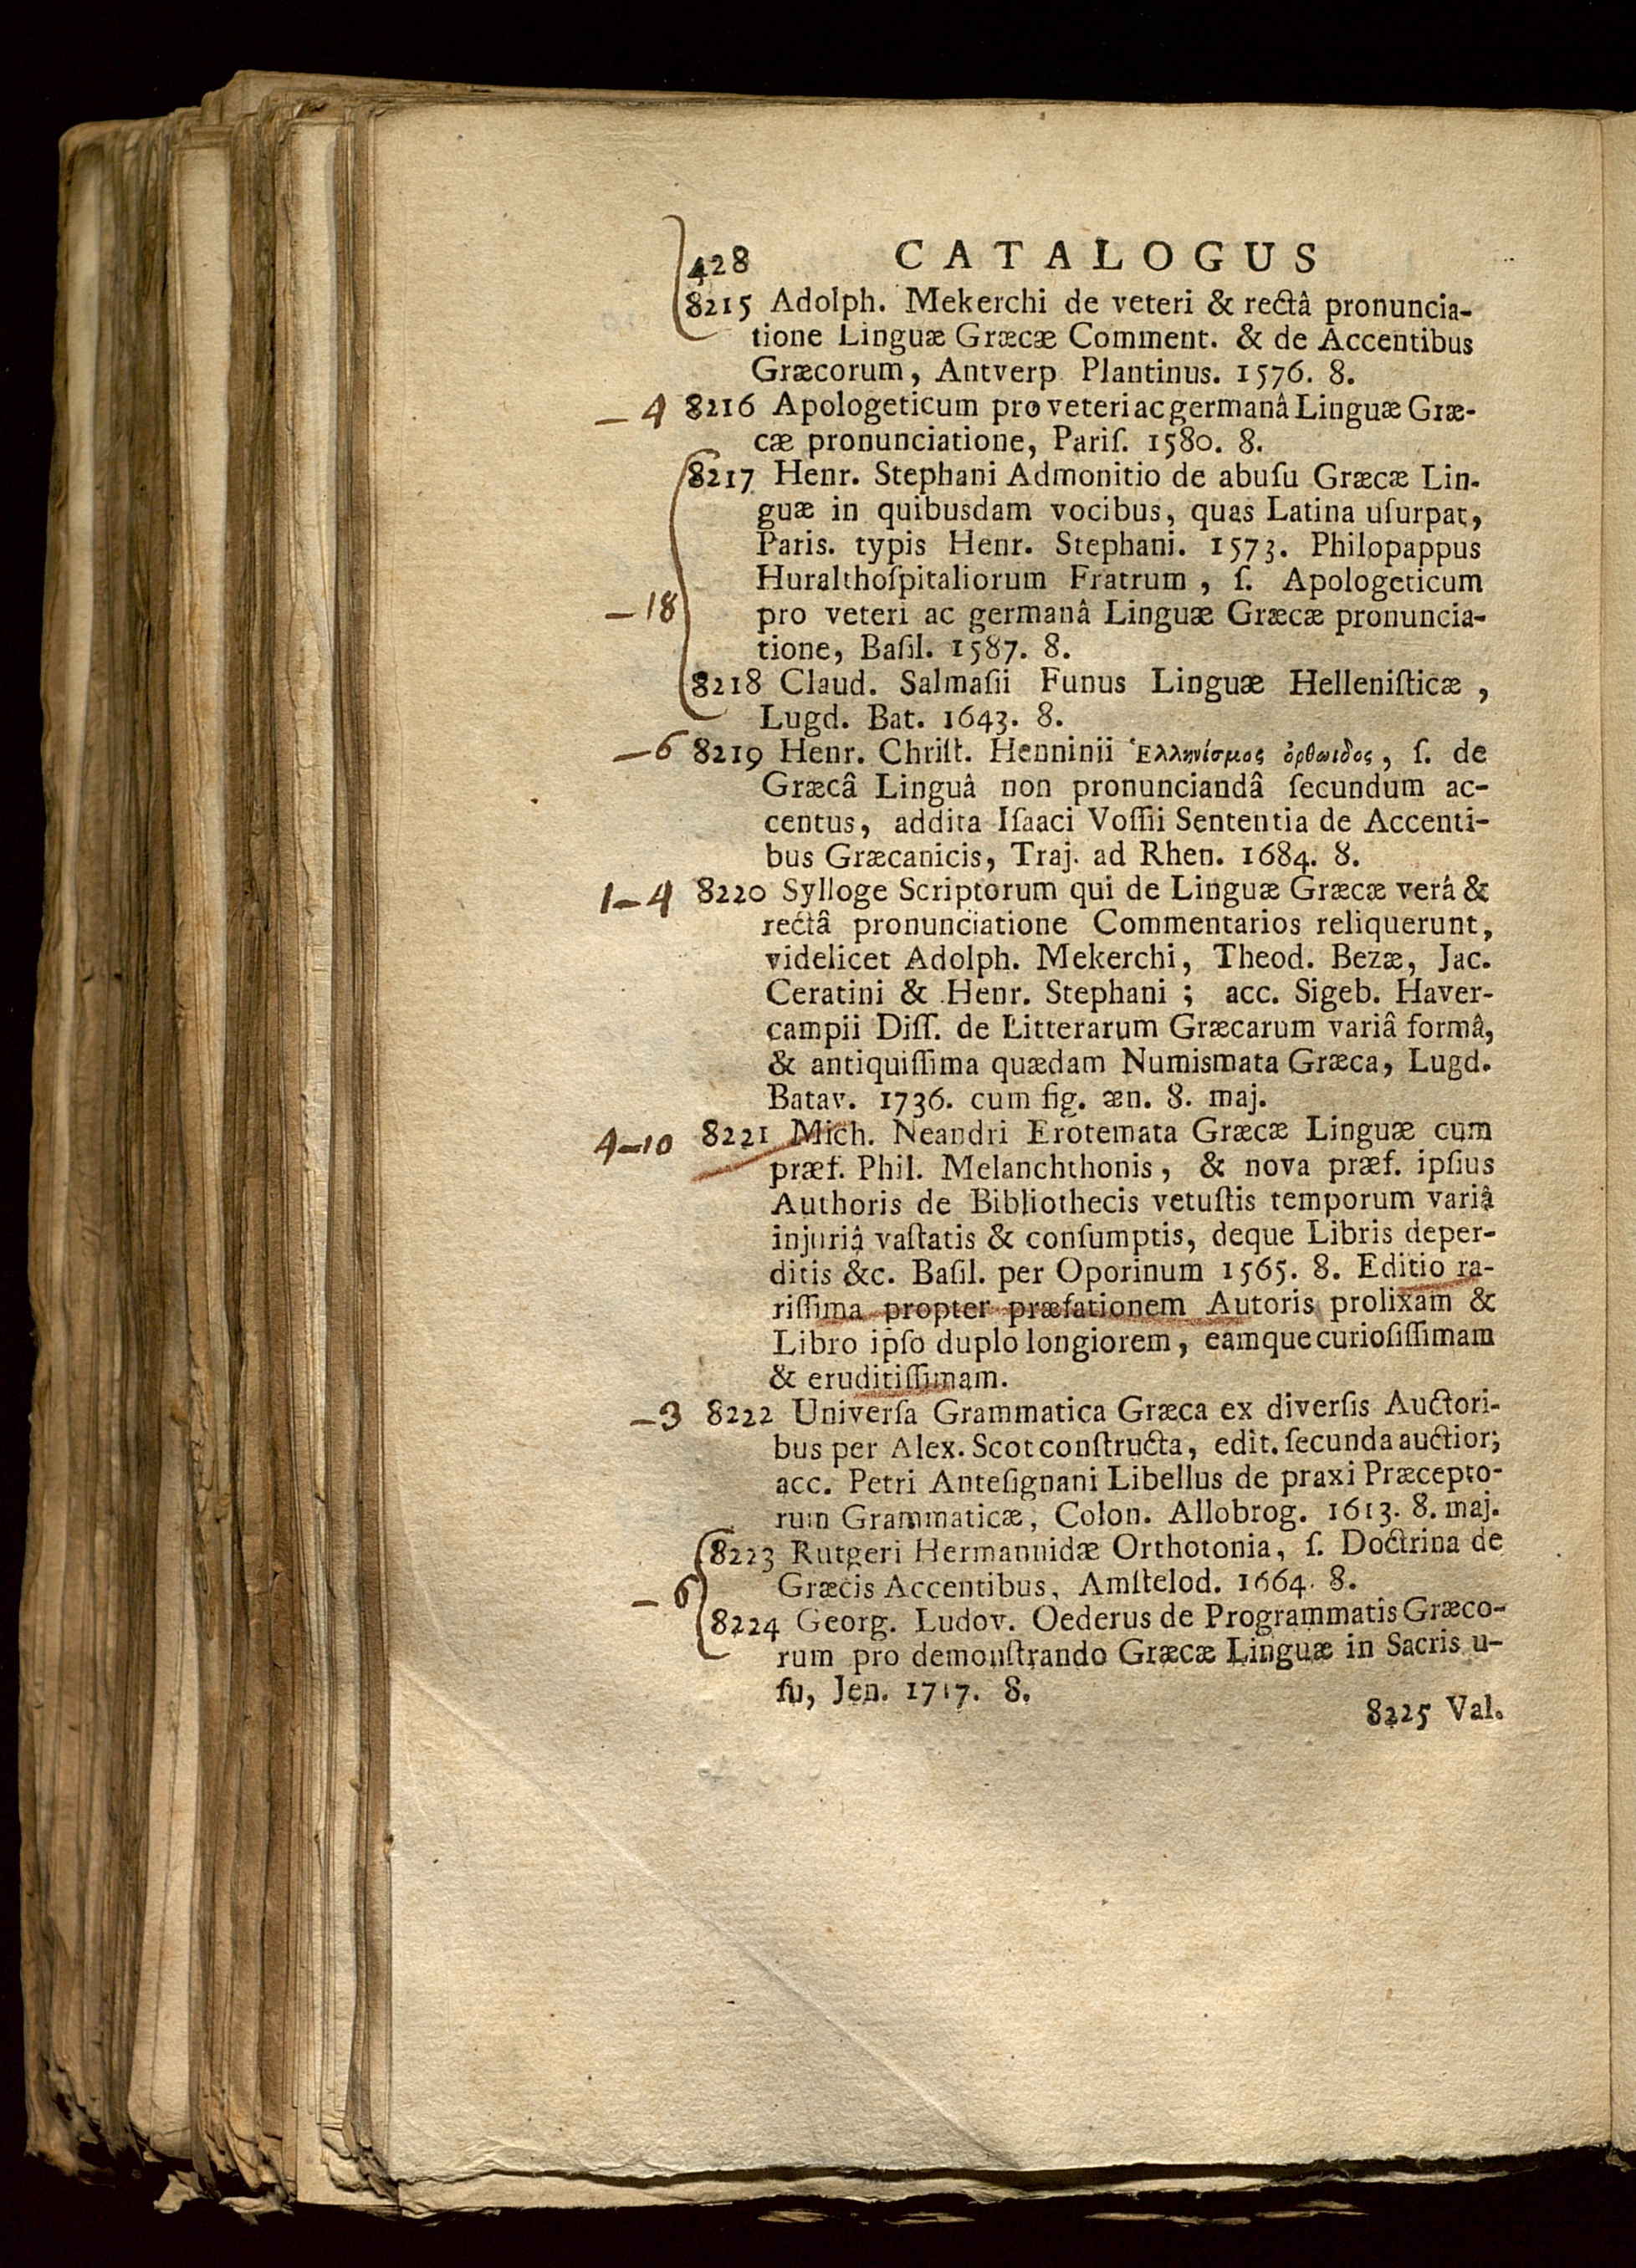 428 CATALOGUS
8215 Adolph. Mekerchi de veteri & rectâ pronuncia-
tione Linguæ Græcæ Comment. & de Accentibus
Græcorum, Antverp Plantinus. 1576. 8.
— 4 8216 Apologeticum pro veteri ac germanâ Linguæ Græ-
cæ pronunciatione, Pariſ. 1580. 8.
8217 Henr. Stephani Admonitio de abuſu Græcæ Lin-
guæ in quibusdam vocibus, quas Latina uſurpat,
Paris. typis Henr. Stephani. 1573. Philopappus
Huralthoſpitaliorum Fratrum, ſ. Apologeticum
— 18 pro veteri ac germanâ Linguæ Græcæ pronuncia-
tione, Baſil. 1587. 8.
8218 Claud. Salmaſii Funus Linguæ Helleniſticæ,
Lugd. Bat. 1643. 8.
— 6 8219 Henr. Chriſt. Henninii Ἑλληνίσμος ὀρθωιδος, ſ. de
Græcâ Linguâ non pronunciandâ ſecundum ac-
centus, addita Iſaaci Voſſii Sententia de Accenti-
bus Græcanicis, Traj. ad Rhen. 1684. 8.
1 — 4 8220 Sylloge Scriptorum qui de Linguæ Græcæ verâ &
rectâ pronunciatione Commentarios reliquerunt,
videlicet Adolph. Mekerchi, Theod. Bezæ, Jac.
Ceratini & Henr. Stephani; acc. Sigeb. Haver-
campii Diſſ. de Litterarum Græcarum variâ formâ,
& antiquiſſima quædam Numismata Græca, Lugd.
Batav. 1736. cum fig. æn. 8. maj.
4 — 10 8221 Mich. Neandri Erotemata Græcæ Linguæ cum
præf. Phil. Melanchthonis, & nova præf. ipſius
Authoris de Bibliothecis vetuſtis temporum variâ
injuriâ vaſtatis & conſumptis, deque Libris deper-
ditis &c. Baſil. per Oporinum 1565. 8. Editio ra-
riſſima propter præfationem Autoris prolixam &
Libro ipſo duplo longiorem, eamque curioſiſſimam
& eruditiſſimam.
— 3 8222 Univerſa Grammatica Græca ex diverſis Auctori-
bus per Alex. Scot conſtructa, edit. ſecunda auctior;
acc. Petri Anteſignani Libellus de praxi Præcepto-
rum Grammaticæ, Colon. Allobrog. 1613. 8. maj.
8223 Rutgeri Hermannidæ Orthotonia, ſ. Doctrina de
— 6 Græcis Accentibus, Amſtelod. 1664. 8.
8224 Georg. Ludov. Oederus de Programmatis Græco-
rum pro demonſtrando Græcæ Linguæ in Sacris u-
ſu, Jen. 1717. 8.
8225 Val.